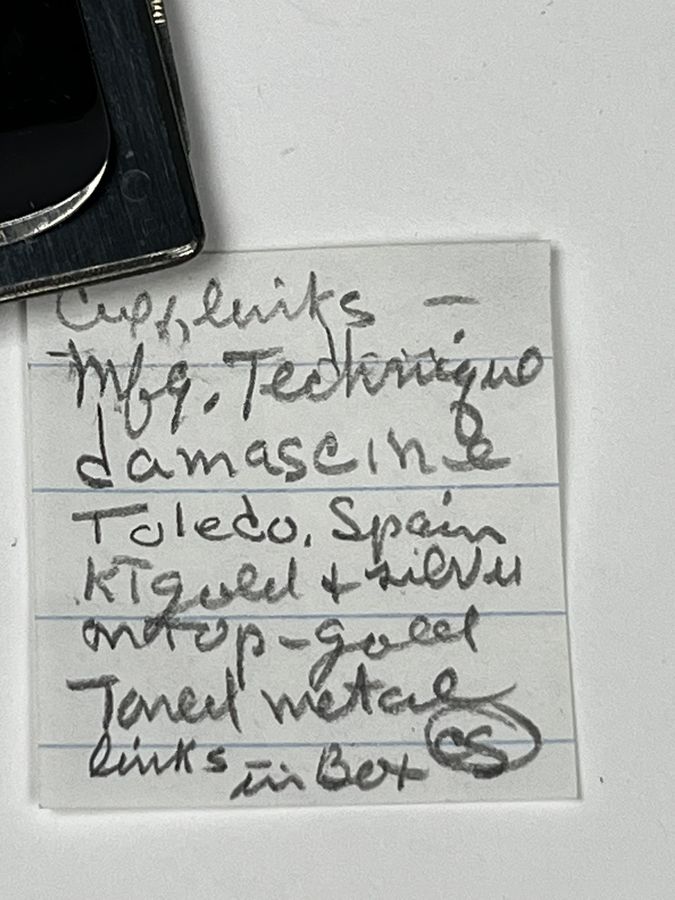 Cufflinks -
Mfg. Technique
damascine
Toledo, Spain
KT gold + silver
on top - gold
Toned metal
links in Box CS